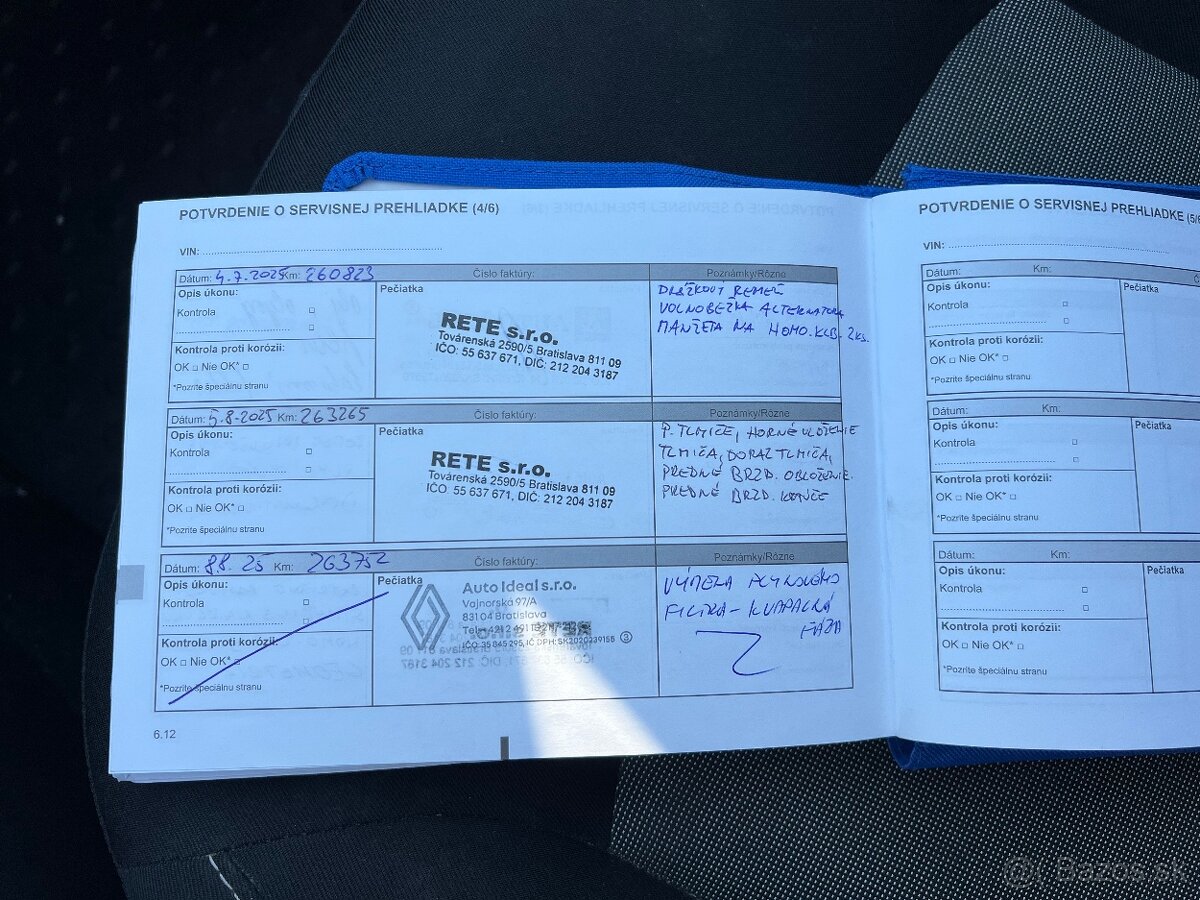 POTVRDENIE O SERVISNEJ PREHLIADKE (4/6)
VIN:
Dátum: 4.7.2025 Km: 260823 Číslo faktúry: Poznámky/Rôzne
Opis úkonu:
Kontrola
Kontrola proti korózii:
OK □ Nie OK* □
*Pozrite špeciálnu stranu
Pečiatka
RETE s.r.o.
Továrenská 2590/5 Bratislava 811 09
IČO: 55 637 671, DIČ: 212 204 3187
DRÁŽKOVÝ REMEŇ
VOĽNOBEŽKA ALTERNATORA
MANŽETA NA HOMO. KLB. 2KS.
Dátum: 5.8.2025 Km: 263265 Číslo faktúry: Poznámky/Rôzne
Opis úkonu:
Kontrola
Kontrola proti korózii:
OK □ Nie OK* □
*Pozrite špeciálnu stranu
Pečiatka
RETE s.r.o.
Továrenská 2590/5 Bratislava 811 09
IČO: 55 637 671, DIČ: 212 204 3187
P. TLMIČE, HORNÉ ULOŽENIE
TLMIČA, DORAZ TLMIČA,
PREDNÉ BRZD. OBLOŽENIE.
PREDNÉ BRZD. KOTÚČE
Dátum: 8.8. 25 Km: 263752 Číslo faktúry: Poznámky/Rôzne
Opis úkonu:
Kontrola
Kontrola proti korózii:
OK □ Nie OK* □
*Pozrite špeciálnu stranu
Pečiatka
Auto Ideal s.r.o.
Vajnorská 97/A
831 04 Bratislava
IČO: 35 845 295, IČ DPH: SK2020239155 3
VÝMENA PLYNOVÉHO
FILTRA - KVAPALNÁ
FÁZA
6.12
POTVRDENIE O SERVISNEJ PREHLIADKE (5/6
VIN:
Dátum: Km:
Opis úkonu:
Kontrola
Kontrola proti korózii:
OK □ Nie OK* □
*Pozrite špeciálnu stranu
Pečiatka
Dátum: Km:
Opis úkonu:
Kontrola
Kontrola proti korózii:
OK □ Nie OK* □
*Pozrite špeciálnu stranu
Pečiatka
Dátum: Km:
Opis úkonu:
Kontrola
Kontrola proti korózii:
OK □ Nie OK* □
*Pozrite špeciálnu stranu
Pečiatka
Bazos.sk